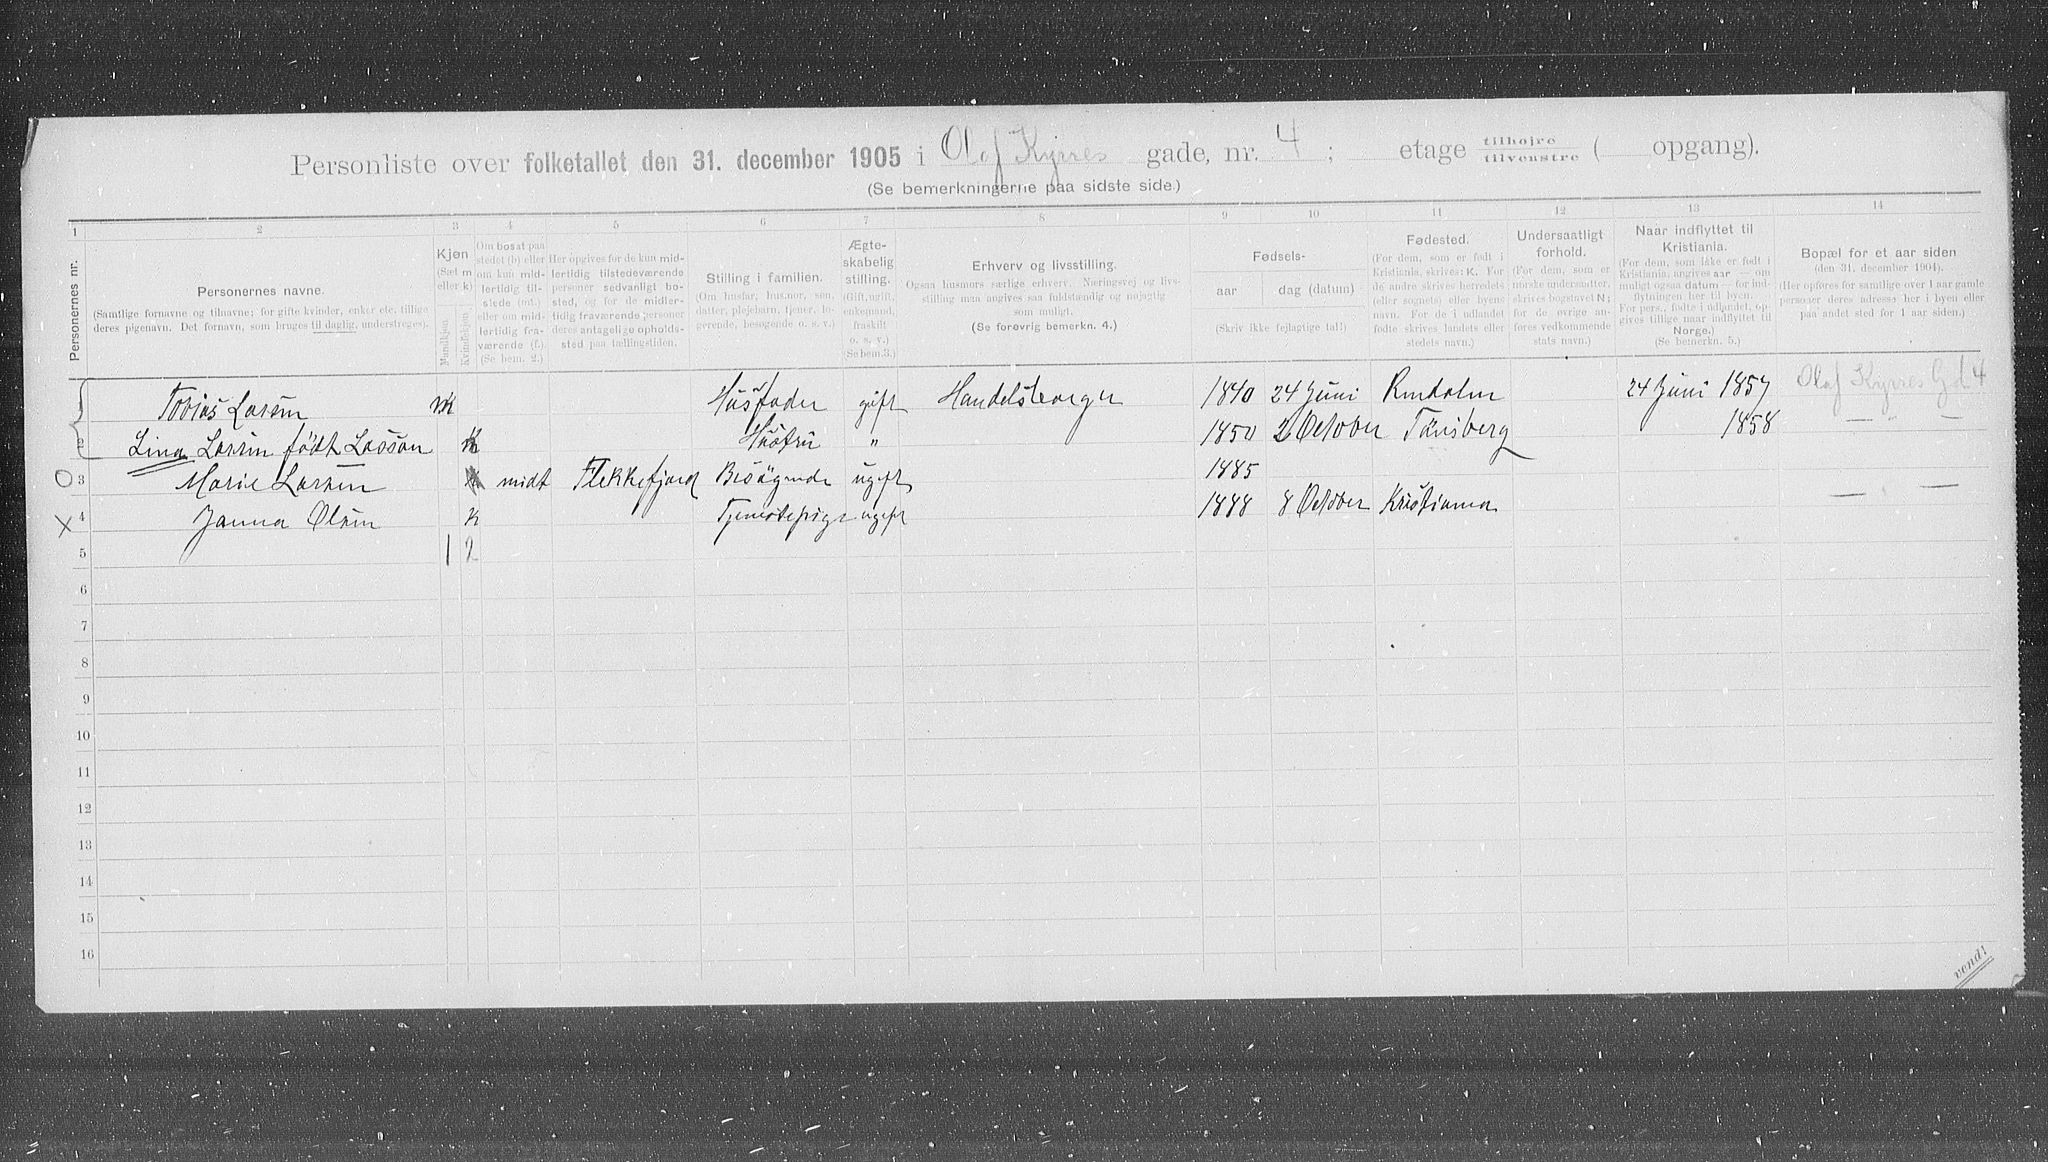 Personliste over folketallet den 31. december 1905 i Olaf Kyrres gade, nr. 4; etage tilhøjre / tilvenstre ( opgang).
(Se bemerkningerne paa sidste side.)
1 2 3 4 5 6 7 8 9 10 11 12 13 14
Personernes nr.
Personernes navne.
(Samtlige fornavne og tilnavne; for gifte kvinder, enker etc. tillige deres pigenavn. Det fornavn, som bruges til daglig, understreges).
Kjøn
(Sæt m eller k)
Mandkjøn
Kvindekjøn
Om bosat paa stedet (b) eller om kun midlertidig tilstede (mt.) eller om midlertidig fraværende (f.) (Se bem. 2.)
Her opgives for de kun midlertidig tilstedeværende personer sedvanligt bosted, og for de midlertidig fraværende personer deres antagelige opholdssted paa tællingstiden.
Stilling i familien.
(Om husfar, husmor, søn, datter, plejebarn, tjener, logerende, besøgende o. s. v.)
Ægteskabelig stilling.
(Gift, ugift, enkemand, fraskilt o. s. v.) (Se bem. 3.)
Erhverv og livsstilling.
Ogsaa husmors særlige erhverv. Næringsvej og livsstilling man angives saa fuldstændig og nøjagtig som muligt.
(Se forøvrig bemerkn. 4.)
Fødsels-
aar
dag (datum)
(Skriv ikke fejlagtige tal!)
Fødested.
(For dem, som er født i Kristiania, skrives: K. For de andre skrives herredets (eller sognets) eller byens navn. For de i udlandet fødte skrives landets eller stedets navn.)
Undersaatligt forhold.
(For dem, som er norske undersaatter, skrives bogstavet N; for de øvrige anføres vedkommende stats navn.)
Naar indflyttet til Kristiania.
(For dem, som ikke er født i Kristiania, angives aar — om muligt ogsaa datum — for indflytningen her til byen. For pers., fødte i udlandet, opgives tillige naar indflyttet til Norge.)
(Se bemerkn. 5.)
Bopæl for et aar siden
(den 31. december 1904).
(Her opføres for samtlige over 1 aar gamle personer deres adresse her i byen eller paa andet sted for 1 aar siden.)
Tobias Larsen m Husfader gift 1840 24 Juni 24 Juni 1857 Olaf Kyrres Gd 4
2 Lina Larsen født Lasson k Hustru „ 1850 2 October Tönsberg 1858 — „ —
3 Marie Larsen k midt Flekkefjord Besögende ugift 1885
4 Janna Olsen k Tjenestepige ugift 1888 8 October Kristiania — „ —
5 1 2
6
7
8
9
10
11
12
13
14
15
16
vend!